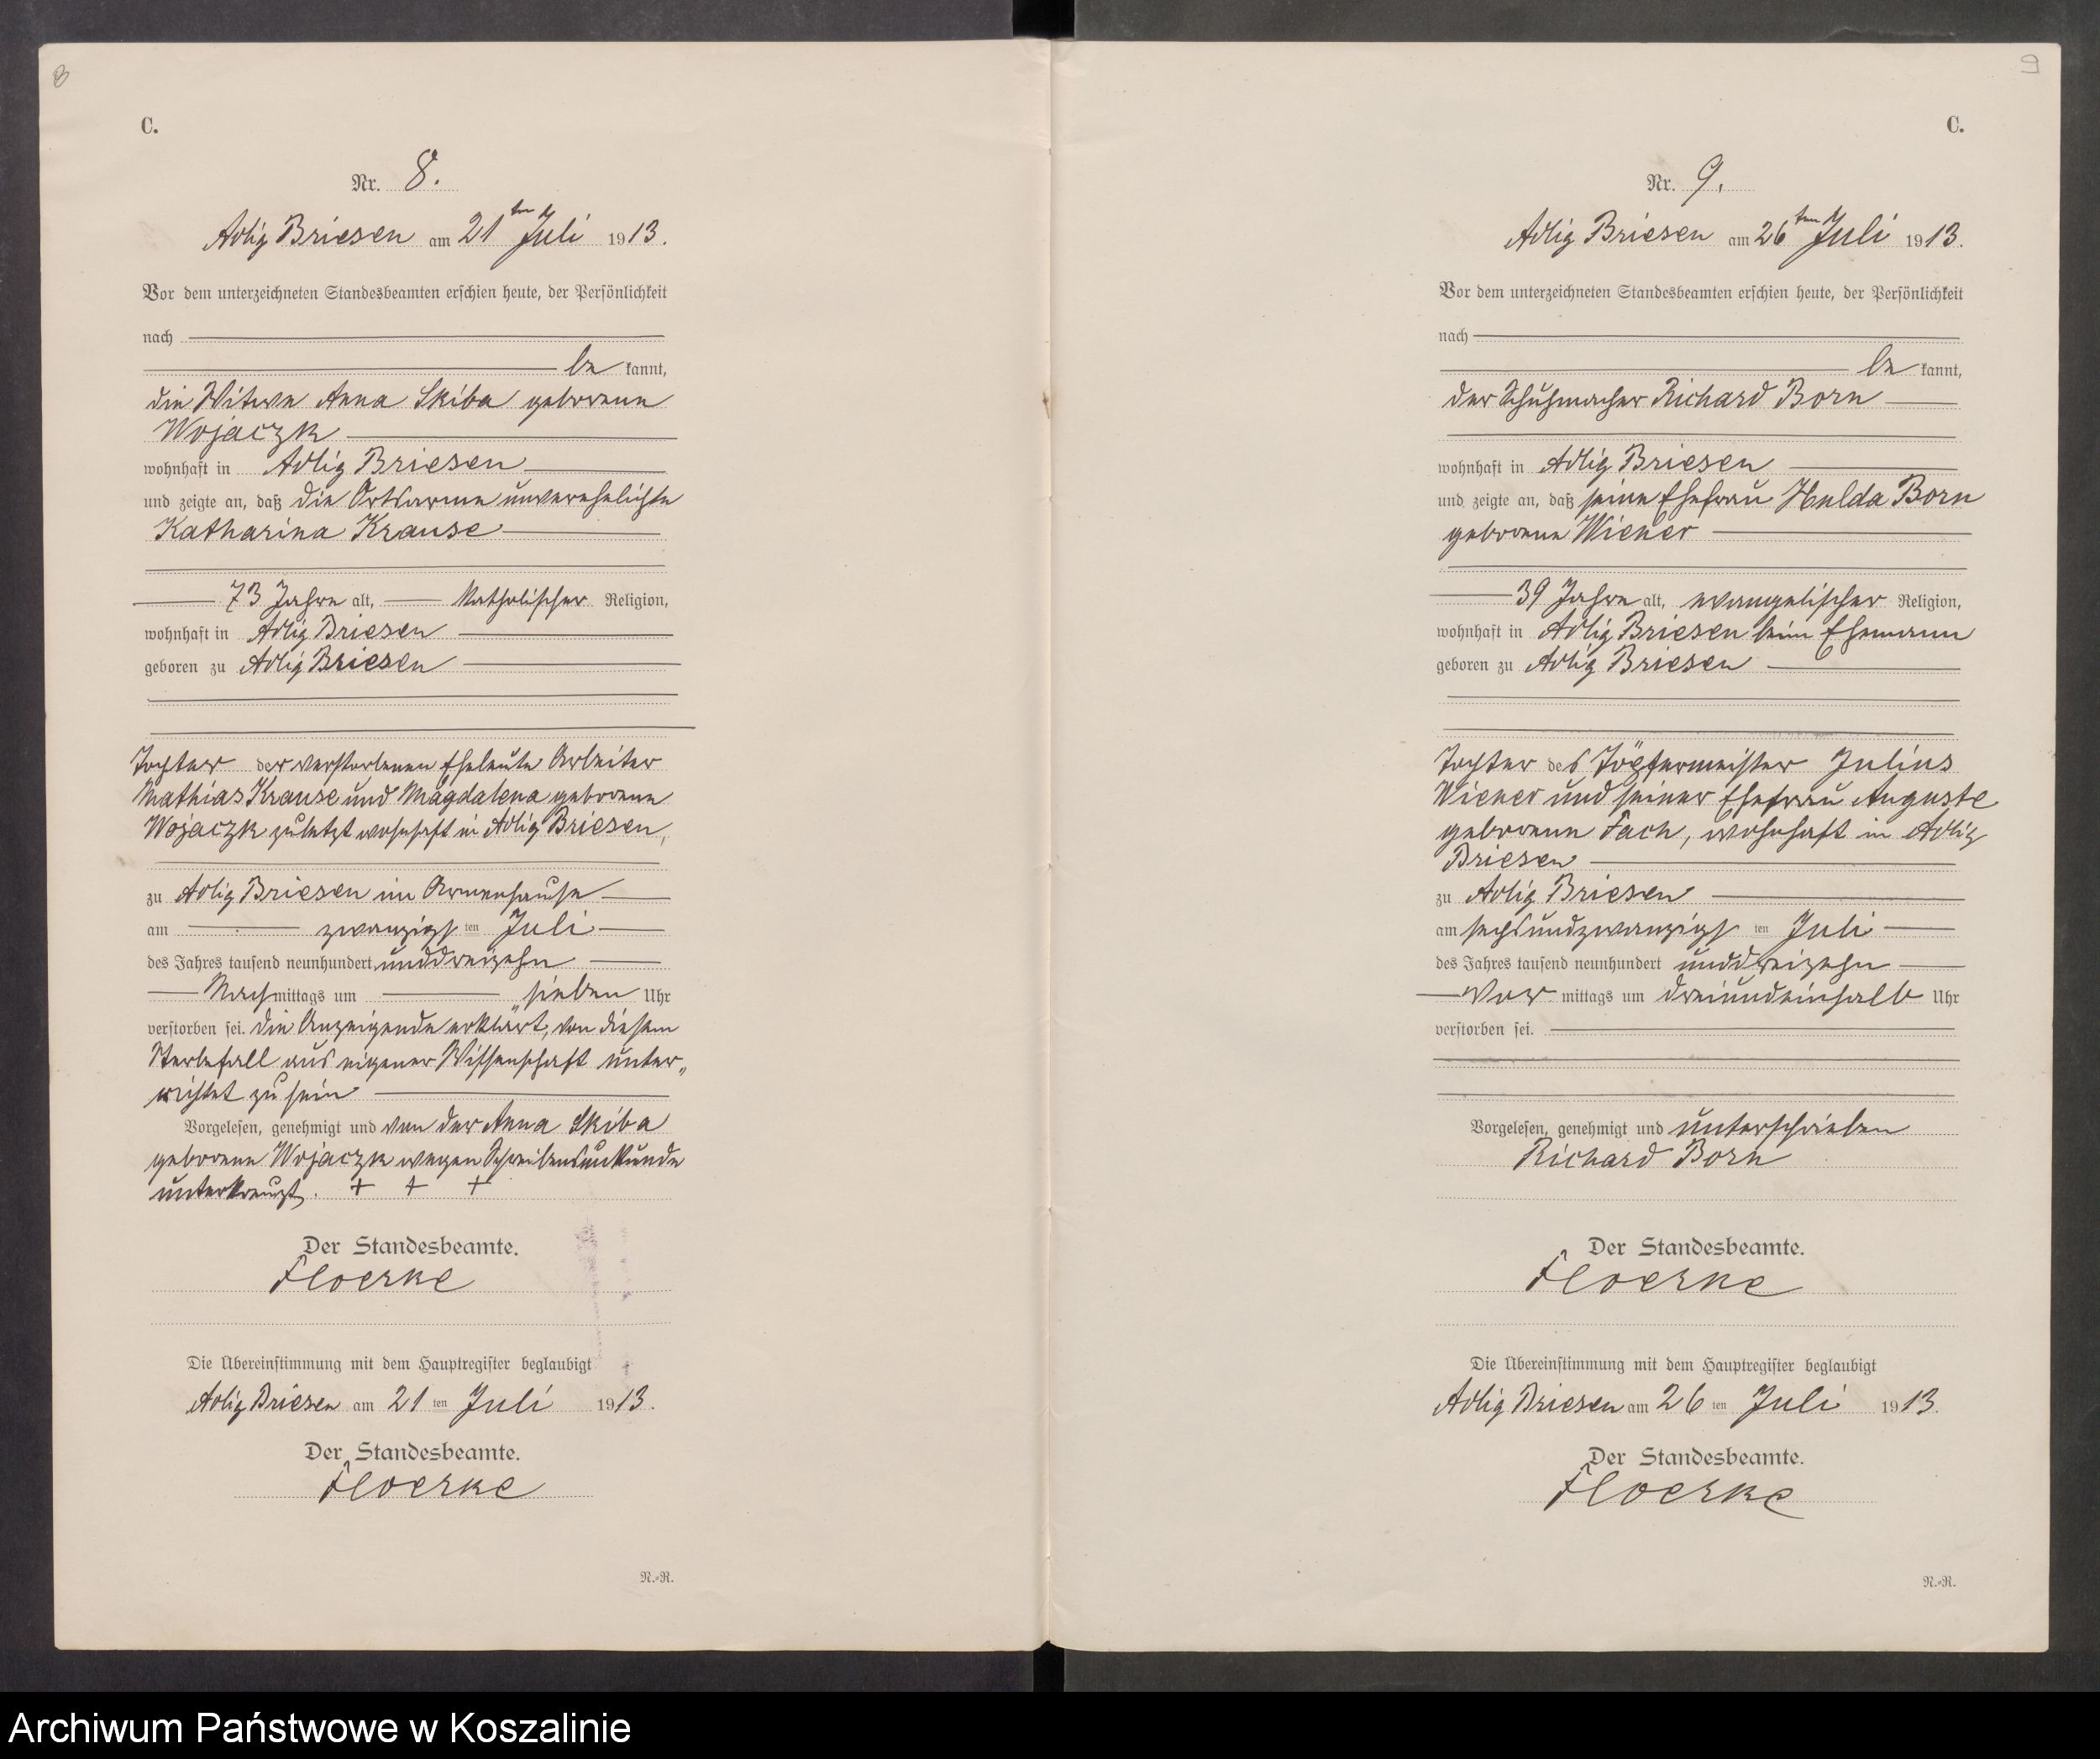 8
C.
Nr. 8.
Adlig Briesen am 21ten Juli 1913.
Vor dem unterzeichneten Standesbeamten erschien heute, der Persönlichkeit
nach
be kannt,
die Witwe Anna Skiba geborene
Wojaczk
wohnhaft in Adlig Briesen
und zeigte an, daß die Ortsarme unverehelichte
Katharina Krause
73 Jahre alt, Katholischer Religion,
wohnhaft in Adlig Briesen
geboren zu Adlig Briesen
Tochter der verstorbenen Eheleute Arbeiter
Mathias Krause und Magdalena geborene
Wojaczk zuletzt wohnhaft in Adlig Briesen,
zu Adlig Briesen im Armenhause
am zwanzigsten Juli
des Jahres tausend neunhundert unddreizehn
Nachmittags um sieben Uhr
verstorben sei. Die Anzeigende erklärt, von diesem
Sterbefall aus eigener Wissenschaft unter„
richtet zu sein
Vorgelesen, genehmigt und von der Anna Skiba
geborene Wojaczk wegen Schreibensunkunde
unterkreuzt. + + +
Der Standesbeamte.
Floerke
Die Übereinstimmung mit dem Hauptregister beglaubigt
Adlig Briesen am 21ten Juli 1913.
Der Standesbeamte.
Floerke
N.-R.
9
C.
Nr. 9.
Adlig Briesen am 26ten Juli 1913.
Vor dem unterzeichneten Standesbeamten erschien heute, der Persönlichkeit
nach
be kannt,
der Schuhmacher Richard Born
wohnhaft in Adlig Briesen
und zeigte an, daß seine Ehefrau Hulda Born
geborene Wiener
39 Jahre alt, evangelischer Religion,
wohnhaft in Adlig Briesen beim Ehemann
geboren zu Adlig Briesen
Tochter des Töpfermeister Julius
Wiener und seiner Ehefrau Auguste
geborene Fach, wohnhaft in Adlig
Briesen
zu Adlig Briesen
am sechsundzwanzigsten Juli
des Jahres tausend neunhundert unddreizehn
Vor mittags um dreiundeinhalb Uhr
verstorben sei.
Vorgelesen, genehmigt und unterschrieben
Richard Born
Der Standesbeamte.
Floerke
Die Übereinstimmung mit dem Hauptregister beglaubigt
Adlig Briesen am 26ten Juli 1913.
Der Standesbeamte.
Floerke
N.-R.
Archiwum Państwowe w Koszalinie